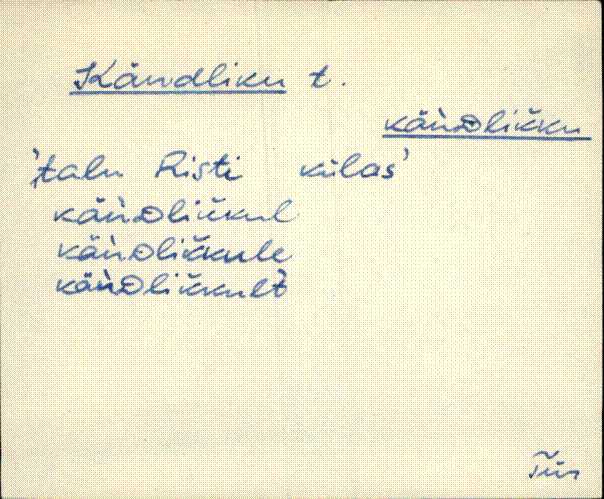 Kändliku t.
käǹDlikku
'talu Risti külas'
käǹDlikkul
käǹDlikkule
käǹDlikkult
Tür